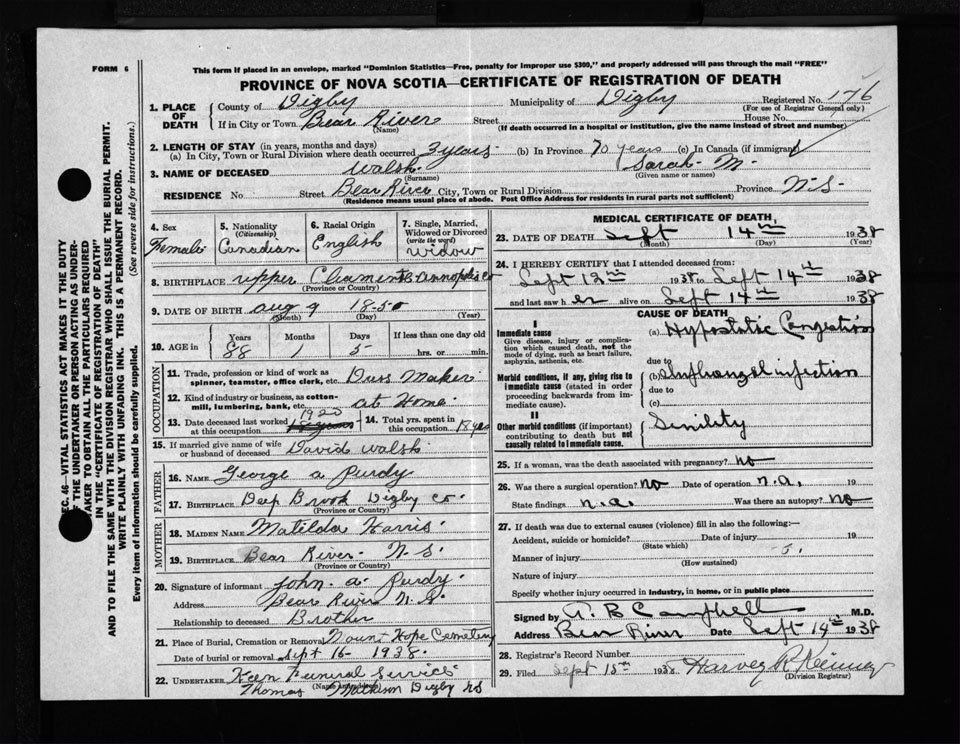 FORM 6
This form if placed in an envelope, marked "Dominion Statistics—Free, penalty for improper use $300," and properly addressed will pass through the mail "FREE"
PROVINCE OF NOVA SCOTIA—CERTIFICATE OF REGISTRATION OF DEATH
1. PLACE OF DEATH County of Digby Municipality of Digby Registered No. 176
(For use of Registrar General only)
If in City or Town Bear River Street House No.
(Name) (If death occurred in a hospital or institution, give the name instead of street and number)
2. LENGTH OF STAY (in years, months and days)
(a) In City, Town or Rural Division where death occurred 3 years (b) In Province 70 years (c) In Canada (if immigrant)
3. NAME OF DECEASED Walsh Sarah M.
(Surname) (Given name or names)
RESIDENCE No. Street Bear River City, Town or Rural Division Province N.S.
(Residence means usual place of abode. Post Office Address for residents in rural parts not sufficient)
4. Sex Female
5. Nationality (Citizenship) Canadian
6. Racial Origin English
7. Single, Married, Widowed or Divorced (write the word) Widow
8. BIRTHPLACE upper Clements Annapolis Co
(Province or Country)
9. DATE OF BIRTH Aug 9 1850
(Month) (Day) (Year)
10. AGE in Years 88 Months 1 Days 5 If less than one day old hrs. or min.
OCCUPATION
11. Trade, profession or kind of work as spinner, teamster, office clerk, etc. Dress Maker
12. Kind of industry or business, as cotton-mill, lumbering, bank, etc. at Home
13. Date deceased last worked at this occupation 1920
14. Total yrs. spent in this occupation 18 yrs
15. If married give name of wife or husband of deceased David Walsh
FATHER
16. NAME George A Purdy
17. BIRTHPLACE Deep Brook Digby Co.
(Province or Country)
MOTHER
18. MAIDEN NAME Matilda Harris
19. BIRTHPLACE Bear River N.S.
(Province or Country)
20. Signature of informant John A. Purdy
Address Bear River N.S.
Relationship to deceased Brother
21. Place of Burial, Cremation or Removal Mount Hope Cemetery
Date of burial or removal Sept 16 1938
22. UNDERTAKER Keen Funeral Service
Thomas Digby NS
(Name and address)
MEDICAL CERTIFICATE OF DEATH
23. DATE OF DEATH Sept 14th 1938
(Month) (Day) (Year)
24. I HEREBY CERTIFY that I attended deceased from:
Sept 12th 1938 to Sept 14th 1938
and last saw her alive on Sept 14th 1938
CAUSE OF DEATH
I
Immediate cause (a) Hypostatic Congestion
Give disease, injury or complication which caused death, not the mode of dying, such as heart failure, asphyxia, asthenia, etc.
due to
Morbid conditions, if any, giving rise to immediate cause (stated in order proceeding backwards from immediate cause). (b) Influenzal infection
due to
(c)
II
Other morbid conditions (if important) contributing to death but not causally related to immediate cause. Sinility
25. If a woman, was the death associated with pregnancy? no
26. Was there a surgical operation? no Date of operation n.a.
State findings n.a. Was there an autopsy? no
27. If death was due to external causes (violence) fill in also the following:—
Accident, suicide or homicide? Date of injury 19
(State which)
Manner of injury
(How sustained)
Nature of injury
Specify whether injury occurred in industry, in home, or in public place
Signed by A. B Campbell M.D.
Address Bear River Date Sept 14th 1938
28. Registrar's Record Number
29. Filed Sept 15th 1938 Harvey R Kinney
(Division Registrar)
SEC. 46—VITAL STATISTICS ACT MAKES IT THE DUTY
OF THE UNDERTAKER OR PERSON ACTING AS UNDER-
TAKER TO OBTAIN ALL THE PARTICULARS REQUIRED
IN THE "CERTIFICATE OF REGISTRATION OF DEATH"
AND TO FILE THE SAME WITH THE DIVISION REGISTRAR WHO SHALL ISSUE THE BURIAL PERMIT.
WRITE PLAINLY WITH UNFADING INK. THIS IS A PERMANENT RECORD.
Every item of information should be carefully supplied. (See reverse side for instructions.)